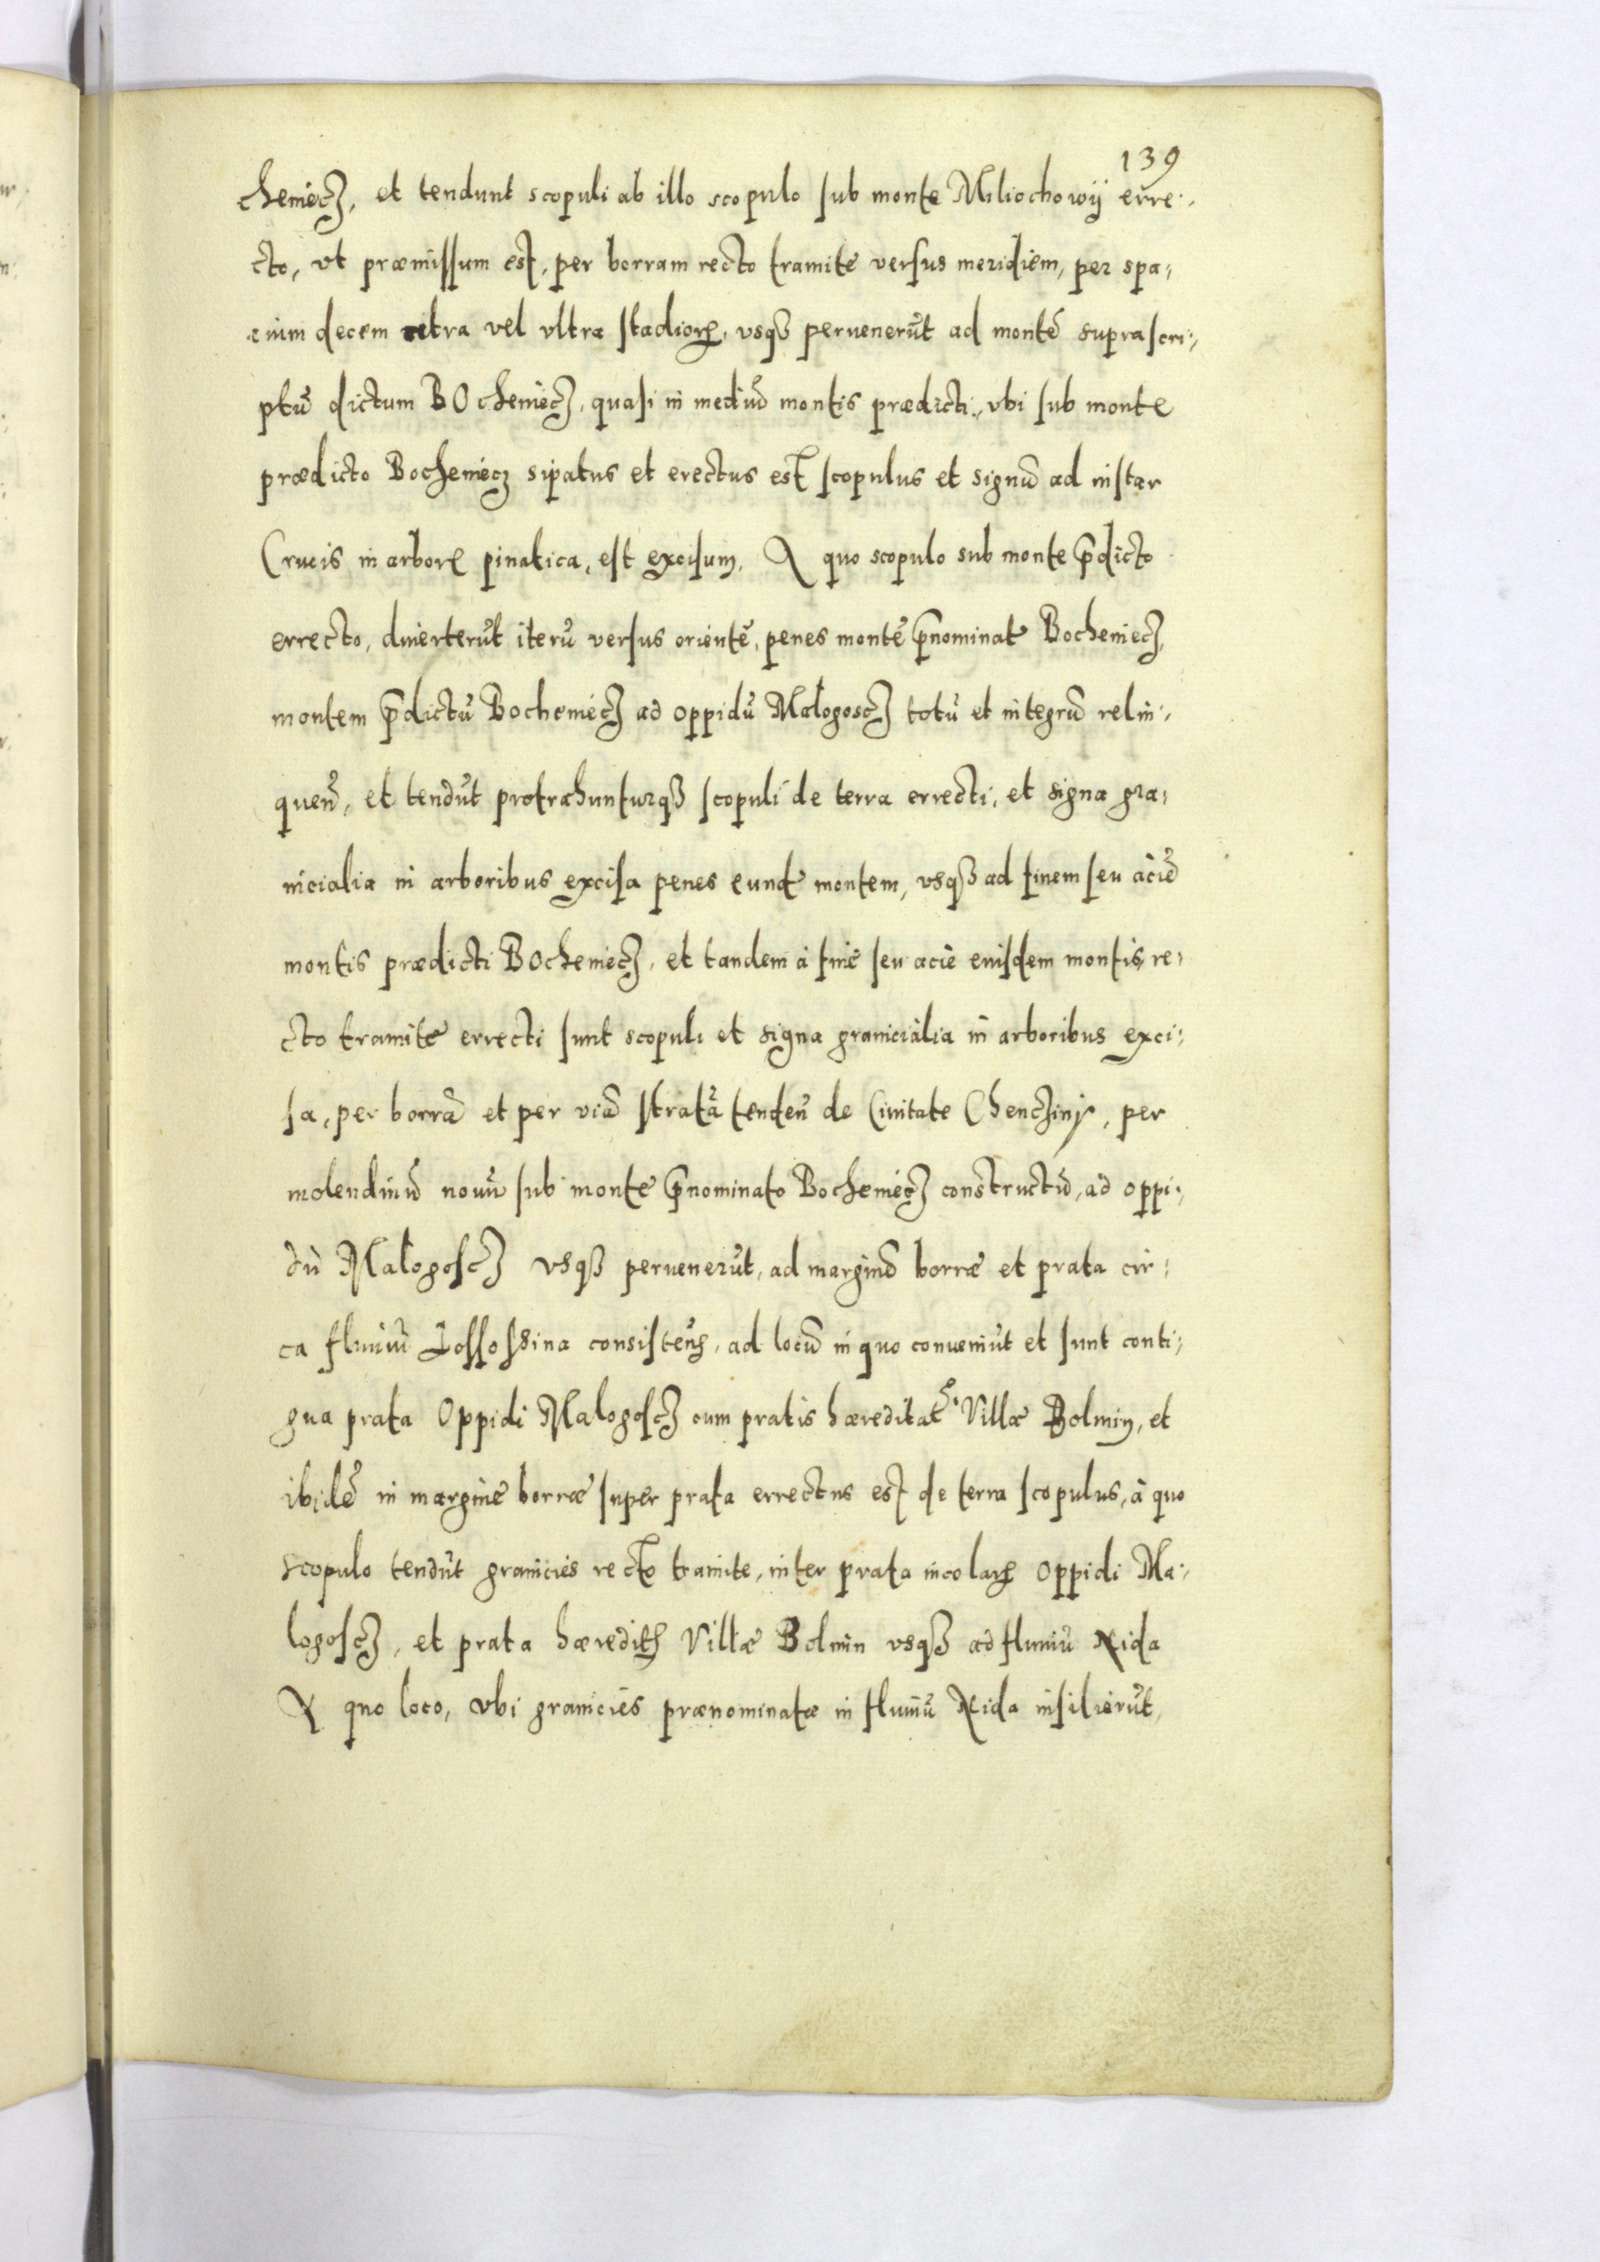 139
cheniecz, et tendunt scopuli ab illo scopulo sub monte Miliochowÿ erre-
cto, vt præmissum est, per borram recto tramite versus meridiem, per spa-
cium decem citra vel vltra stadiorꝝ, vsqꝫ peruenerūt ad montē suprascri-
ptū dictum BOcheniecz, quasi in mediū montis prædicti, vbi sub monte
prædicto Bocheniecz sipatus et erectus est scopulus et signū ad instar
Crucis in arborē pinatica, est excisum, A quo scopulo sub monte p̄dicto
errecto, diuerterūt iterū versus orientē, penes montē p̄nominatū Bocheniecz,
montem p̄dictū Bocheniecz ad oppidū Małogoscz totū et integrū relin-
quen̄, et tendūt protrahunturqꝫ scopuli de terra errecti, et signa gra-
nicialia in arboribus excisa penes eundē montem, vsqꝫ ad finem seu aciē
montis prædicti BOcheniecz, et tandem à fine seu acie eiusdem montis, re-
cto tramite errecti sunt scopuli et signa granicialia in arboribus exci-
sa, per borrā et per viā stratā tenden̄ de Ciuitate Chenczinÿ, per
molendinū nouū sub monte p̄nominato Bocheniecz constructū, ad oppi-
dū Małogoscz vsqꝫ peruenerūt, ad marginē borræ et prata cir-
ca fluuiū Lossossina consisten̄, ad locū in quo conueniūt et sunt conti-
gua prata Oppidi Malogoscz cum pratis hæreditat̄ Villæ Bolmin, et
ibidē in margine borræ super prata errectus est de terra scopulus, à quo
scopulo tendūt granicies recto tramite, inter prata incolarꝝ Oppidi Ma-
logoscz, et prata hæredit̄ Villæ Bolmin vsqꝫ ad fluuiū Nida
A quo loco, vbi granicies prænominatæ in fluuiū Nida insilierūt,